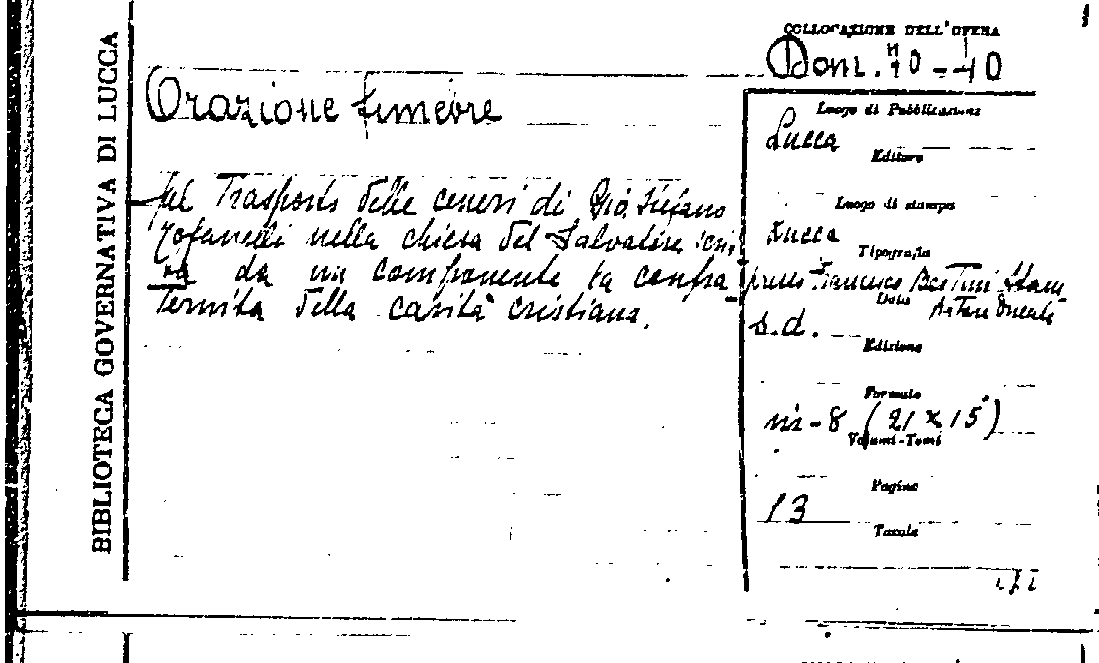 BIBLIOTECA GOVERNATIVA DI LUCCA
COLLOCAZIONE DELL'OPERA
Dom. 10 - 40
Orazione funebre
pel Trasporto delle ceneri di Gio. Stefano
Zofanelli nella chiesa del Salvatore scrit
ta da un componente la confra
ternita della carità cristiana.
Luogo di Pubblicazione
Lucca
Editore
Luogo di stampa
Lucca
Tipografia
presso Francesco Bertini
Data
s.d.
Edizione
Formato
in-8 (21 x 15)
Volumi-Tomi
Pagine
13
Tavole